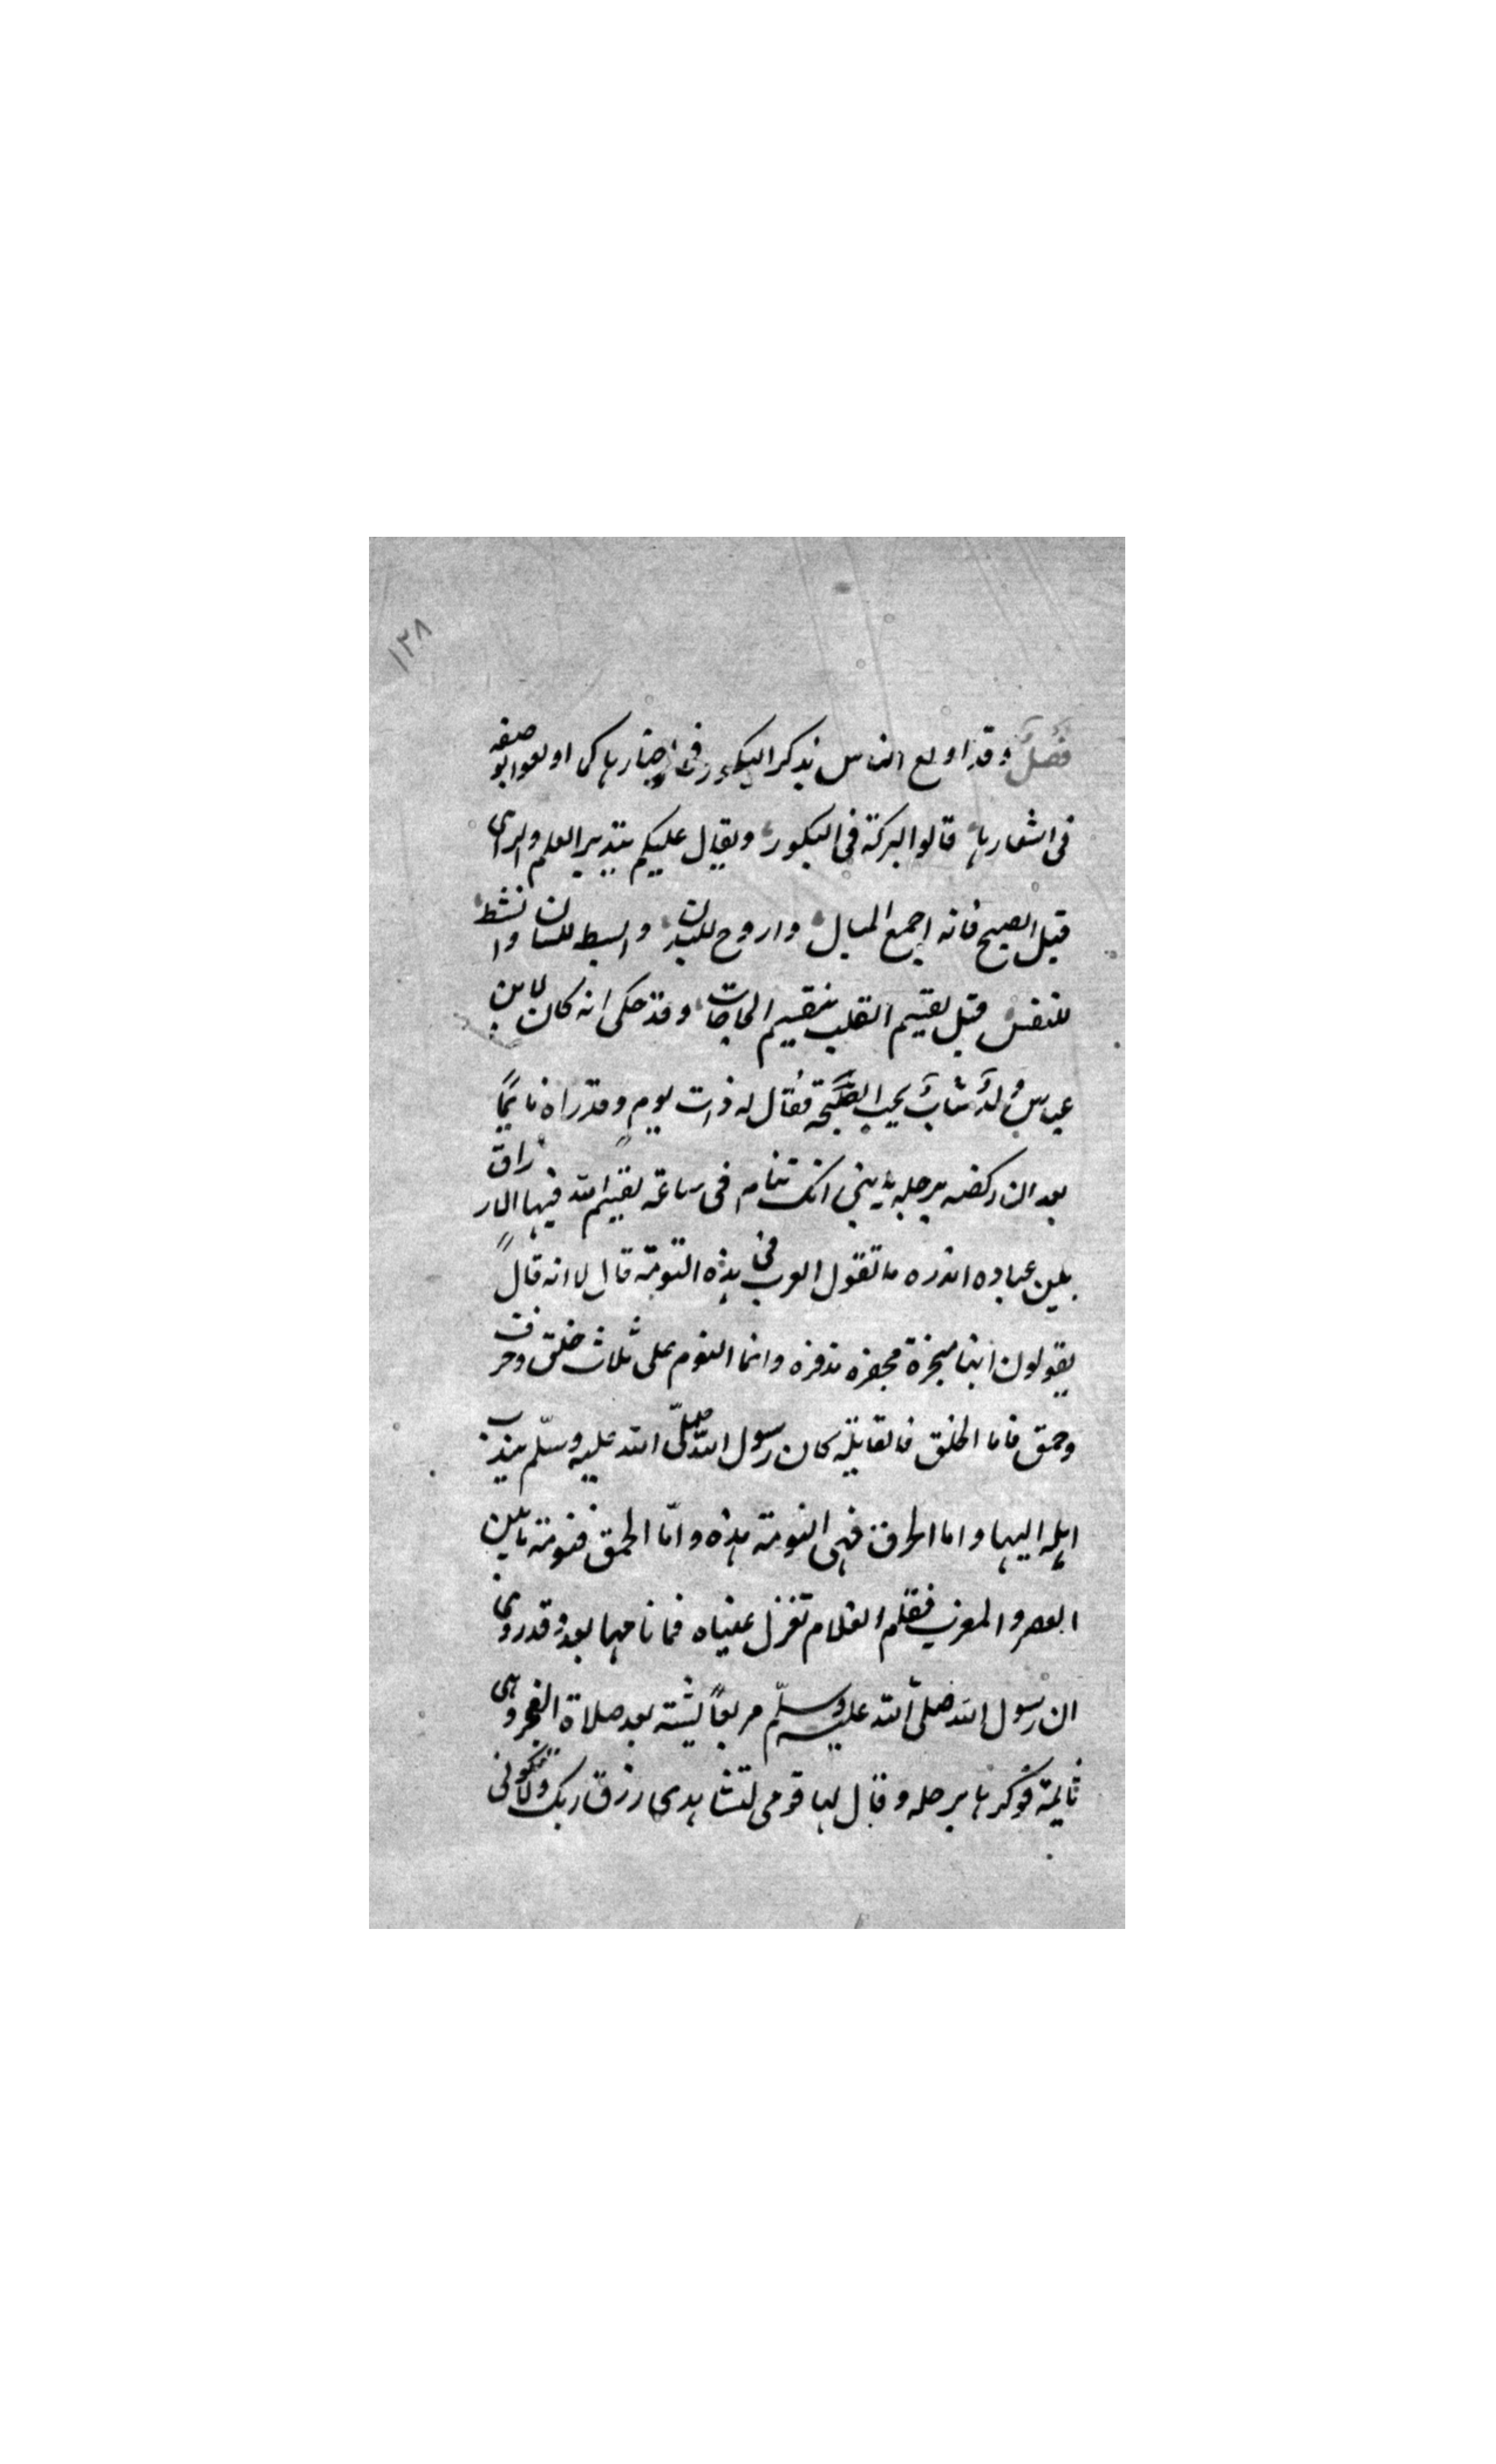 ١٢٨
فصل وقد اولع الناس بذكر البكور فى اخبارها كما اولعوا بوصفه
فى اشعارها قالوا البركة فى البكور ويقال عليكم بتدبير العلم والراى
قبل الصبح فانه اجمع للبال واروح للبدن وابسط للسان وانشط
للنفس قبل تقسيم القلب بتقسيم الحاجات وقد حكى انه كان لابن
عباس ولد شاب يحب الصبحة فقال له ذات يوم وقد راه نائمًا
بعد ان ركضه برجله يا بنى انك تنام فى ساعة يقسم الله فيها الارزاق
بين عباده اتدرى ما تقول العرب فى هذه النومة قال لا انه قال
يقولون انها مبخرة مجفرة مذفرة وانما النوم على ثلاث خلق وخرق
وحمق فاما الخلق فالقايلة كان رسول الله صلّى الله عليه وسلّم يندب
اهله اليها واما الخرق فهى النومة هذه وامّا الحمق فنومة ما بين
العصر والمغرب فقام الغلام تغزل عيناه فما نامها بعد وقد روى
ان رسول الله صلى الله عليه وسلّم مر بعائشة بعد صلاة الفجر وهى
نائمة فوكزها برجله وقال لها قومى لتشاهدى رزق ربك ولا تكونى